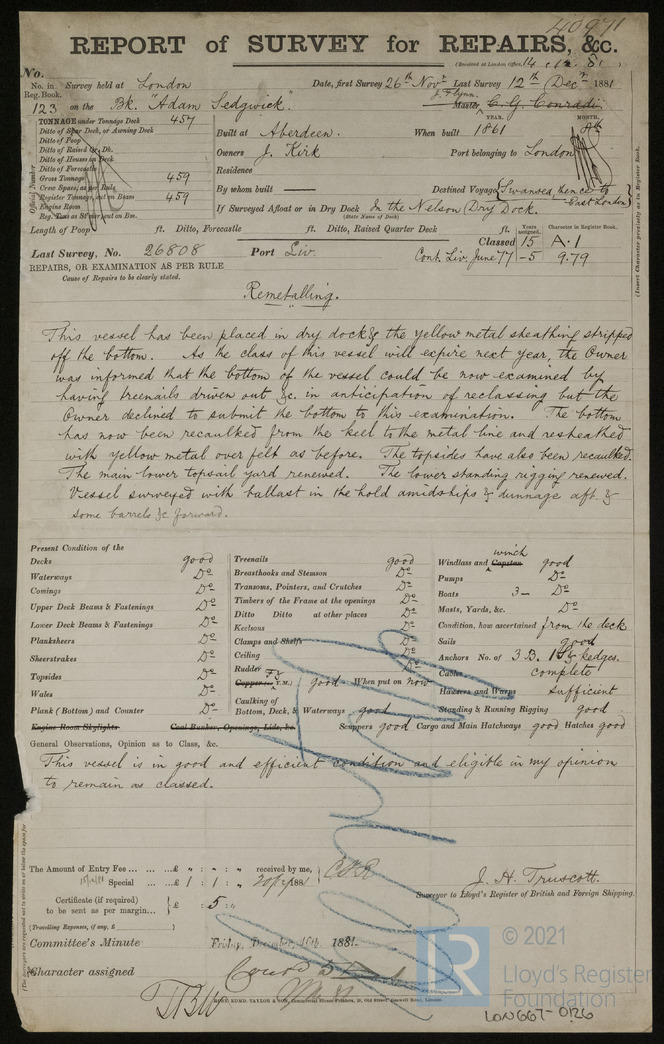 40971
REPORT of SURVEY for REPAIRS, &c.
(Received at London Office, 14 . 12 . 81)
No.
No. in Survey held at London Date, first Survey 26th Novr Last Survey 12th Decr 1881
Reg. Book.
J. Flynn.
123 on the Bk. "Adam Sedgwick". Master C. G. Conradi
TONNAGE under Tonnage Deck 457
Ditto of Spar Deck, or Awning Deck
Ditto of Poop
Ditto of Raised Qr. Dk.
Ditto of Houses on Deck
Ditto of Forecastle
Gross Tonnage 459
Crew Space, as per Rule
Register Tonnage, cut on Beam 459
Engine Room
Official Number
YEAR. MONTH.
Built at Aberdeen. When built 1861
Owners J. Kirk Port belonging to London
Residence
By whom built Destined Voyage Swansea thence to East London
If Surveyed Afloat or in Dry Dock In the Nelson Dry Dock.
(State Name of Dock)
Length of Poop ft. Ditto, Forecastle ft. Ditto, Raised Quarter Deck ft.
Years assigned. Character in Register Book.
Classed 15 A.1
Last Survey, No. 26808 Port Liv. Cont. Liv. June 77 - 5 9.79
REPAIRS, OR EXAMINATION AS PER RULE
Cause of Repairs to be clearly stated.
(Insert Character precisely as in Register Book.)
Remetalling.
This vessel has been placed in dry dock & the yellow metal sheathing stripped
off the bottom. As the class of this vessel will expire next year, the Owner
was informed that the bottom of the vessel could be now examined by
having treenails driven out &c. in anticipation of reclassing but the
Owner declined to submit the bottom to this examination. The bottom
has now been recaulked from the keel to the metal line and resheathed
with yellow metal over felt as before. The topsides have also been recaulked.
The main lower topsail yard renewed. The lower standing rigging renewed.
Vessel surveyed with ballast in the hold amidships & dunnage aft &
some barrels &c forward.
Present Condition of the
Decks good
Waterways Do
Comings Do
Upper Deck Beams & Fastenings Do
Lower Deck Beams & Fastenings Do
Planksheers Do
Sheerstrakes Do
Topsides Do
Wales Do
Plank (Bottom) and Counter Do
Engine Room Skylights Coal Bunker, Openings, Lids, &c.
Treenails good
Breasthooks and Stemson Do
Transoms, Pointers, and Crutches Do
Timbers of the Frame at the openings Do
Ditto Ditto at other places Do
Keelsons Do
Clamps and Shelfs Do
Ceiling Do
Rudder Do
Copper (or Y.M.) good When put on now
Caulking of
Bottom, Deck, & Waterways good
Scuppers good Cargo and Main Hatchways good Hatches good
winch
Windlass and Capstan good
Pumps Do
Boats 3 - Do
Masts, Yards, &c. Do
Condition, how ascertained from the deck
Sails good
Anchors No. of 3 B. 1 S. kedges.
Cables complete
Hawsers and Warps Sufficient
Standing & Running Rigging good
General Observations, Opinion as to Class, &c.
This vessel is in good and efficient condition and eligible in my opinion
to remain as classed.
The Amount of Entry Fee ... ... ...£ " : " : " received by me,
Special ... ...£ 1 : 1 : " 1881
Certificate (if required)
to be sent as per margin... £ : 5 : "
(Travelling Expenses, if any, £ )
J. H. Truscott.
Surveyor to Lloyd's Register of British and Foreign Shipping.
Committee's Minute Friday, December 16th. 1881.
Character assigned
MORE, EDMD. TAYLOR & SON, Commercial Steam Printers, 19, Old Street, Goswell Road, London.
LR
© 2021
Lloyd's Register
Foundation
LON667-0126